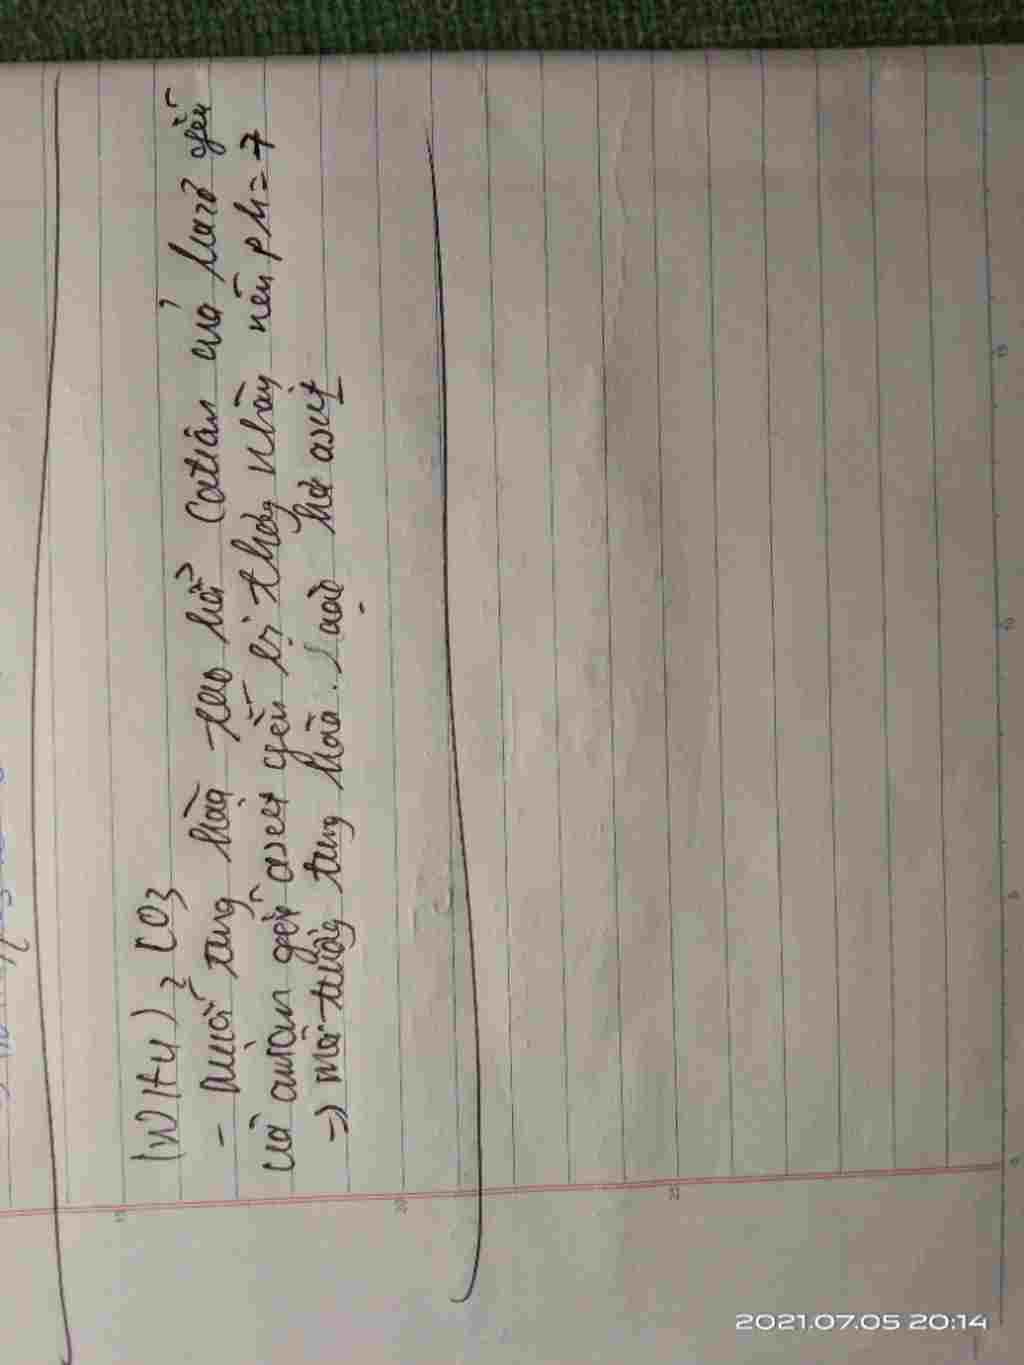 (NH4)2 CO3
- Muối trung hòa tạo bởi Cation của bazơ yếu
và anion gốc axit yếu bị thủy phân nên pH = 7
=> môi trường trung hòa. hoặc axit
15
20
25
5
10
15
2021.07.05 20:14